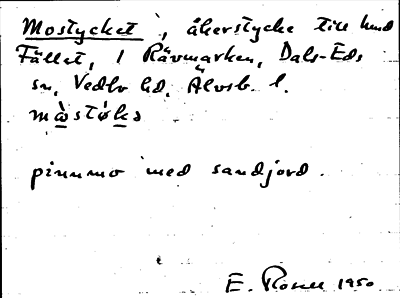 Mostycket, åkerstycke till hmd
Fället, 1 Rävmarken, Dals-Eds
sn, Vedbo hd, Älvsb. l.
mòstýkə
pinnmo med sandjord.
E. Rosell 1950